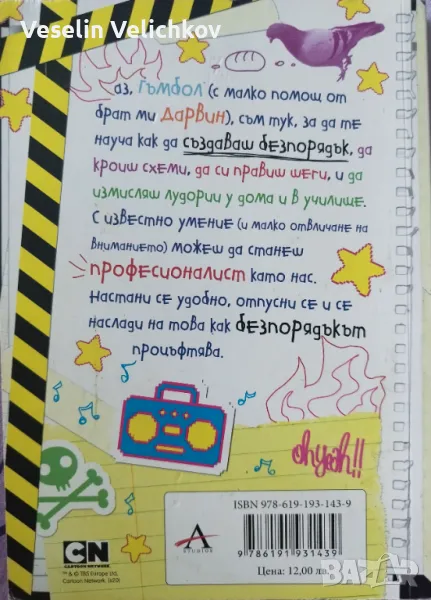 Veselin Velichkov
аз, Гъмбол (с малко помощ от
брат ми Дарвин), съм тук, за да те
науча как да създаваш безпорядък, да
кроиш схеми, да си правиш шеги, и да
измисляш лудории у дома и в училище.
С известно умение (и малко отвличане на
вниманието) можеш да станеш
професионалист като нас.
Настани се удобно, отпусни се и се
наслади на това как безпорядъкът
процъфтява.
oh yeah!!
ISBN 978-619-193-143-9
A
STUDIOS
9 786191 931439
Цена: 12,00 лв.
CN
CARTOON NETWORK
™ & © TBS Europe Ltd,
Cartoon Network.
BAZAR